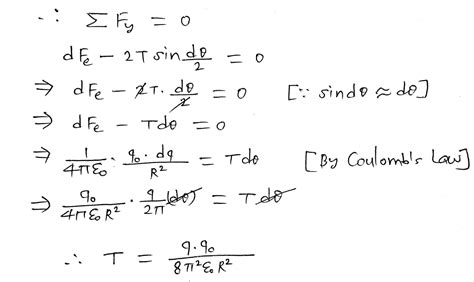 ∴ ΣF_y = 0
dF_e − 2T sin dθ/2 = 0
⇒ dF_e − 2T · dθ/2 = 0 [∵ sindθ ≈ dθ]
⇒ dF_e − Tdθ = 0
⇒ 1/4πε₀ · q₀·dq/R² = Tdθ [By Coulomb's Law]
⇒ q₀/4πε₀R² · q/2π (dθ) = T dθ
∴ T = q·q₀/8π²ε₀R²